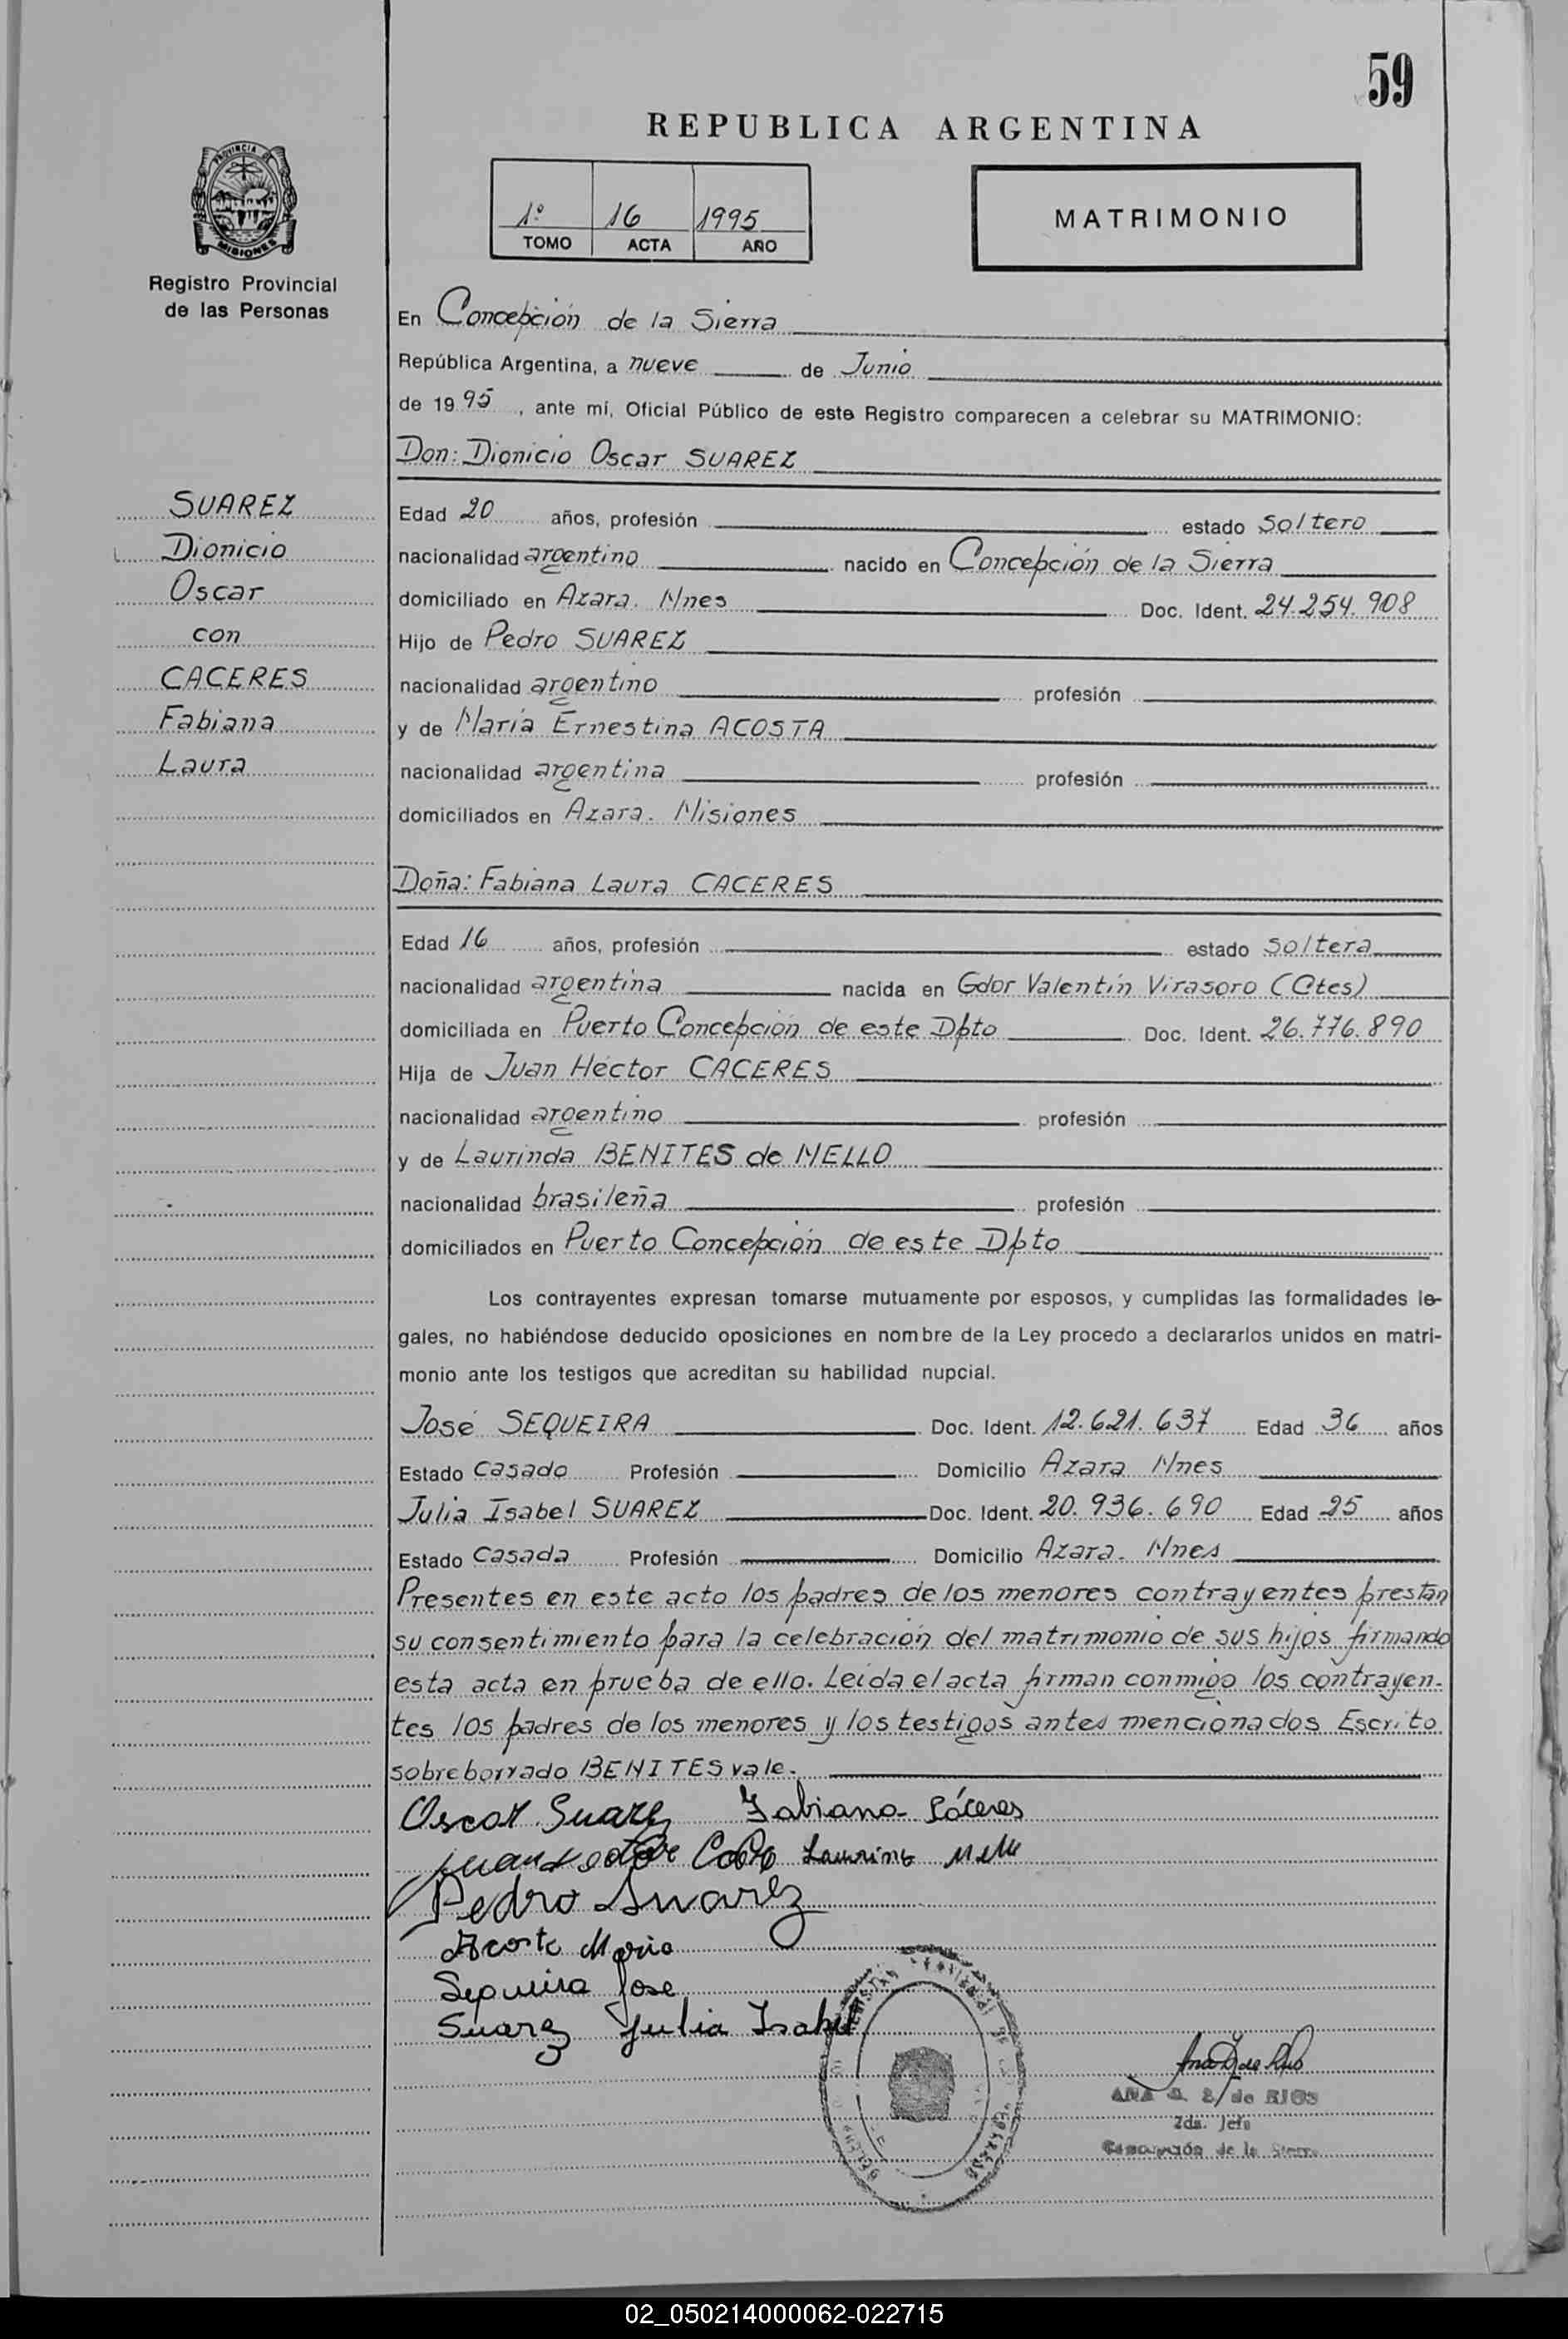 59
REPUBLICA ARGENTINA
PROVINCIA DE
MISIONES
Registro Provincial
de las Personas
1º 16 1995
TOMO ACTA AÑO
MATRIMONIO
En Concepción de la Sierra
República Argentina, a nueve de Junio
de 19 95, ante mí, Oficial Público de este Registro comparecen a celebrar su MATRIMONIO:
Don: Dionicio Oscar SUAREZ
SUAREZ
Dionicio
Oscar
con
CACERES
Fabiana
Laura
Edad 20 años, profesión estado Soltero
nacionalidad argentino nacido en Concepción de la Sierra
domiciliado en Azara. Mnes Doc. Ident. 24.254.908
Hijo de Pedro SUAREZ
nacionalidad argentino profesión
y de María Ernestina ACOSTA
nacionalidad argentina profesión
domiciliados en Azara. Misiones
Doña: Fabiana Laura CACERES
Edad 16 años, profesión estado soltera
nacionalidad argentina nacida en Gdor Valentín Virasoro (Ctes)
domiciliada en Puerto Concepción de este Dpto Doc. Ident. 26.776.890
Hija de Juan Héctor CACERES
nacionalidad argentino profesión
y de Laurinda BENITES de MELLO
nacionalidad brasileña profesión
domiciliados en Puerto Concepción de este Dpto
Los contrayentes expresan tomarse mutuamente por esposos, y cumplidas las formalidades le-
gales, no habiéndose deducido oposiciones en nombre de la Ley procedo a declararlos unidos en matri-
monio ante los testigos que acreditan su habilidad nupcial.
José SEQUEIRA Doc. Ident. 12.621.637 Edad 36 años
Estado Casado Profesión Domicilio Azara Mnes
Julia Isabel SUAREZ Doc. Ident. 20.936.690 Edad 25 años
Estado Casada Profesión Domicilio Azara. Mnes
Presentes en este acto los padres de los menores contrayentes prestan
su consentimiento para la celebración del matrimonio de sus hijos firmando
esta acta en prueba de ello. Leída el acta firman conmigo los contrayen-
tes los padres de los menores y los testigos antes mencionados. Escrito
sobreborrado BENITES vale.
Oscar Suarez Fabiana Cáceres
Juan
Pedro Suarez
Acosta Maria
Sequeira Jose
Suarez Julia Isabel
de RIOS
2da. Jefe
Concepción de la Sierra
02_050214000062-022715